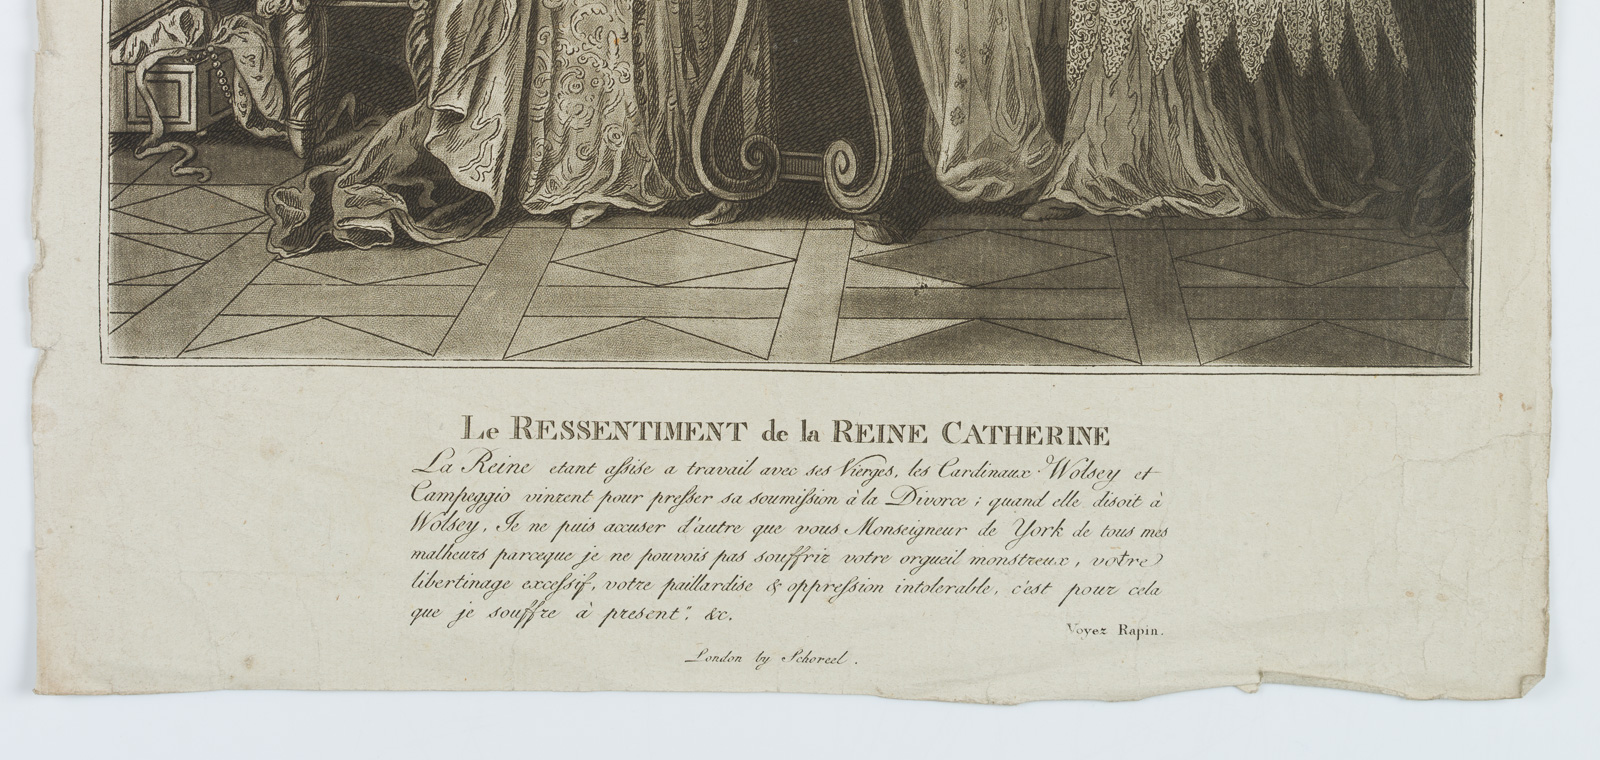 Le RESSENTIMENT de la REINE CATHERINE
La Reine etant assise a travail avec ses Vierges, les Cardinaux Wolsey et
Campeggio vinrent pour presser sa soumission à la Divorce; quand elle disoit à
Wolsey, Je ne puis accuser d'autre que vous Monseigneur de York de tous mes
malheurs parceque je ne pouvois pas souffrir votre orgueil monstreux, votre
libertinage excessif, votre paillardise & oppression intolerable, c'est pour cela
que je souffre à present". &c.
Voyez Rapin.
London by Schoreel.